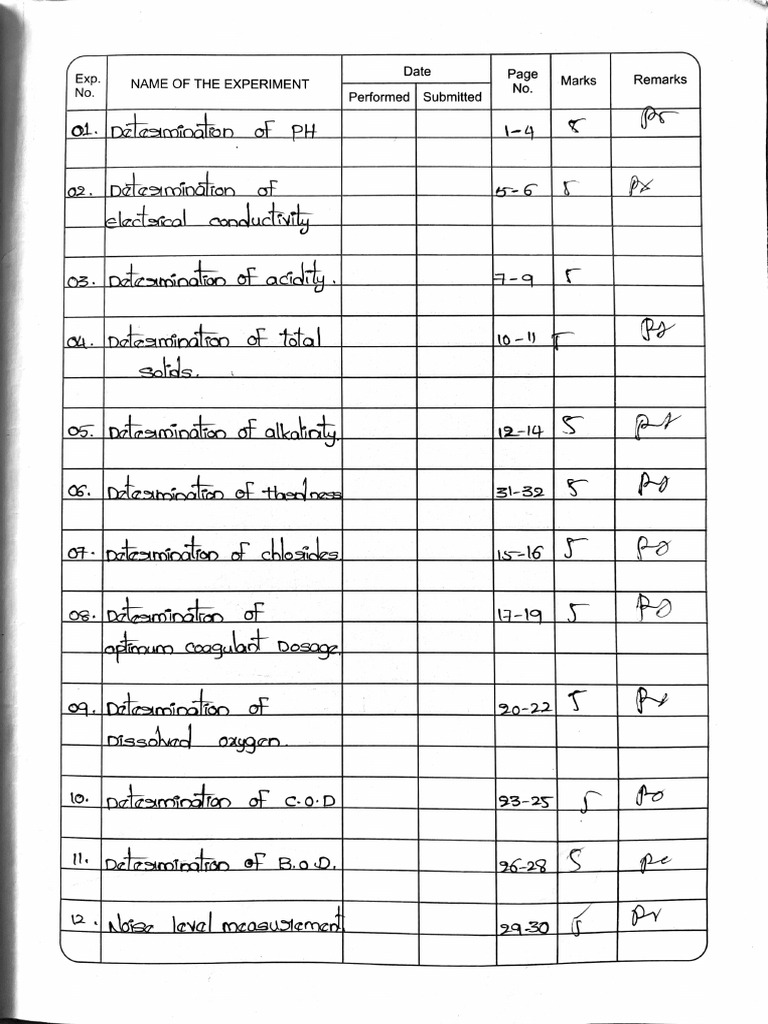 Exp. No. NAME OF THE EXPERIMENT Date Page No. Marks Remarks
Performed Submitted
01. Determination of PH 1-4
02. Determination of 5-6 5
electrical conductivity
03. Determination of acidity. 7-9 5
04. Determination of total 10-11
solids.
05. Determination of alkalinity. 12-14 5
06. Determination of 31-32 5
07. Determination of chlorides. 15-16 5
08. Determination of 17-19 5
optimum coagulant Dosage.
09. Determination of 20-22 5
Dissolved oxygen.
10. Determination of C.O.D 23-25 5
11. Determination of B.O.D. 26-28 5
12. Noise level measurement 29-30 5